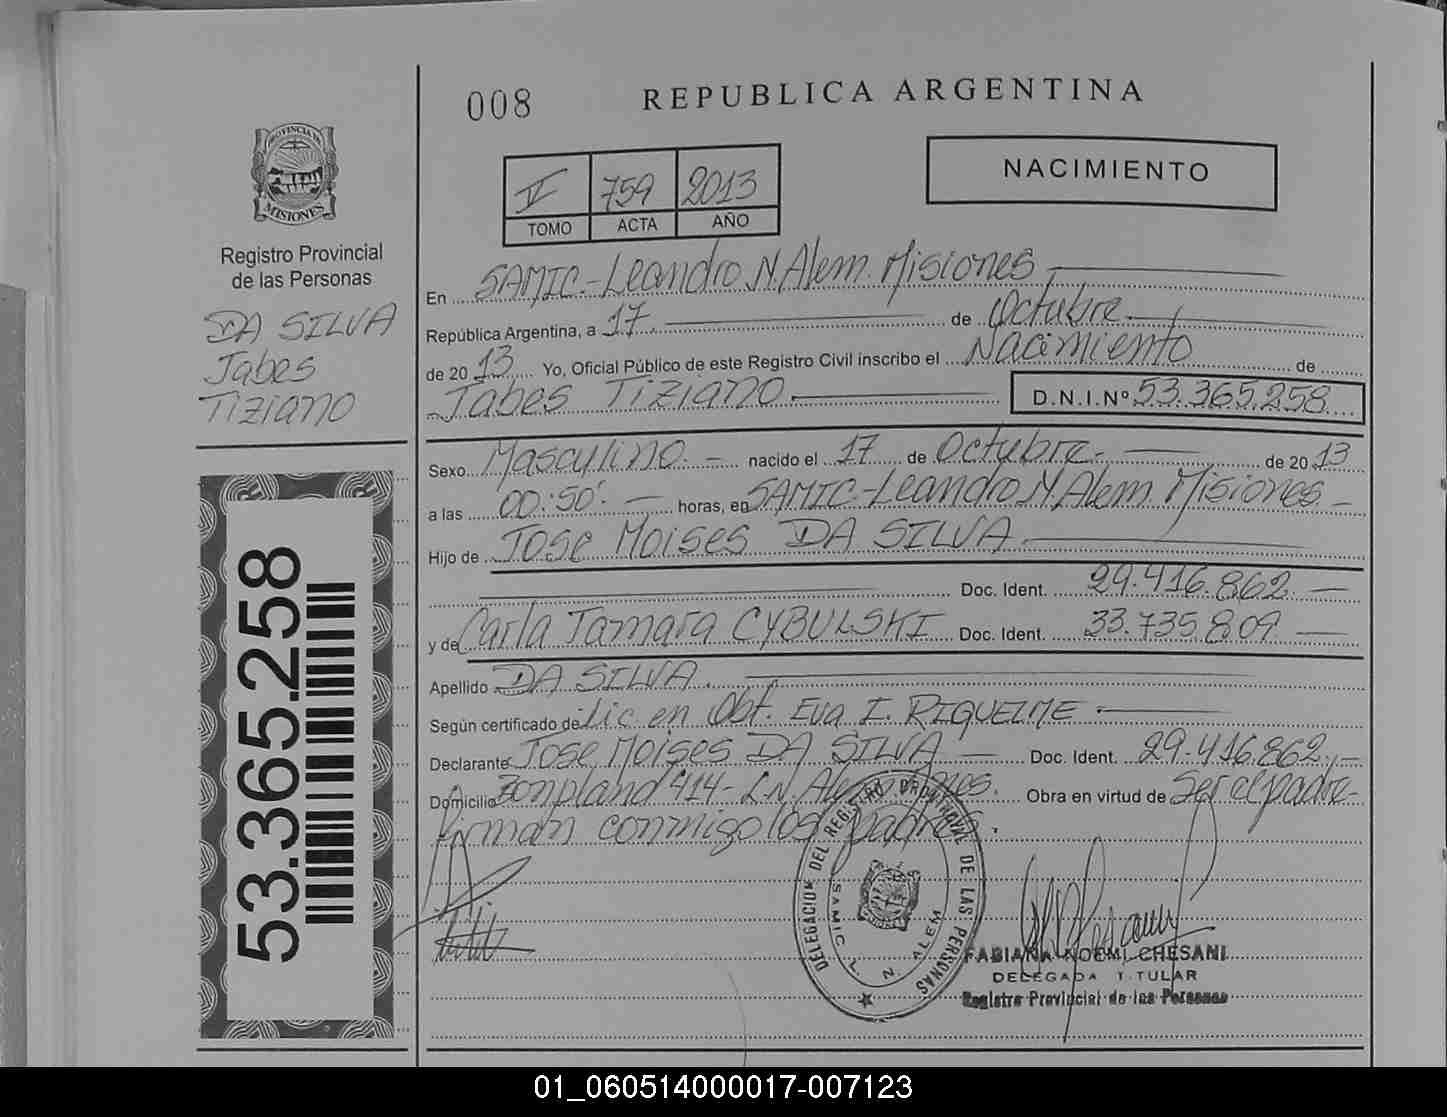 008
REPUBLICA ARGENTINA
PROVINCIA DE
MISIONES
Registro Provincial
de las Personas
DA SILVA
Jabes
Tiziano
53.365.258
IV 759 2013
TOMO ACTA AÑO
NACIMIENTO
En SAMIC.-Leandro N. Alem. Misiones
República Argentina, a 17 de Octubre
de 2013 Yo, Oficial Público de este Registro Civil inscribo el Nacimiento de
Jabes Tiziano D.N.I.Nº 53.365.258
Sexo Masculino. - nacido el 17 de Octubre. de 2013
a las 00:50'. - horas, en SAMIC.-Leandro N. Alem. Misiones -
Hijo de Jose Moises DA SILVA.
Doc. Ident. 29.416.862. -
y de Carla Tamara CYBULSKI Doc. Ident. 33.735.809 -
Apellido DA SILVA.
Según certificado de Lic en Obt. Eva I. RIQUELME.
Declarante Jose Moises DA SILVA - Doc. Ident. 29.416.862.-
Domicilio Bonpland 414- L.N. Alem Mnes. Obra en virtud de Ser el padre-
Firman conmigo los padres.
DELEGACION DEL REGISTRO PROVINCIAL DE LAS PERSONAS
SAMIC L. N. ALEM
FABIANA NOEMI CHESANI
DELEGADA TITULAR
Registro Provincial de las Personas
01_060514000017-007123